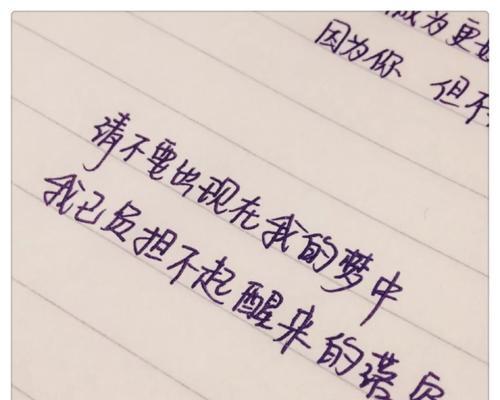 为更
因为你 但不
请不要出现在我的梦中
我已负担不起醒来的落